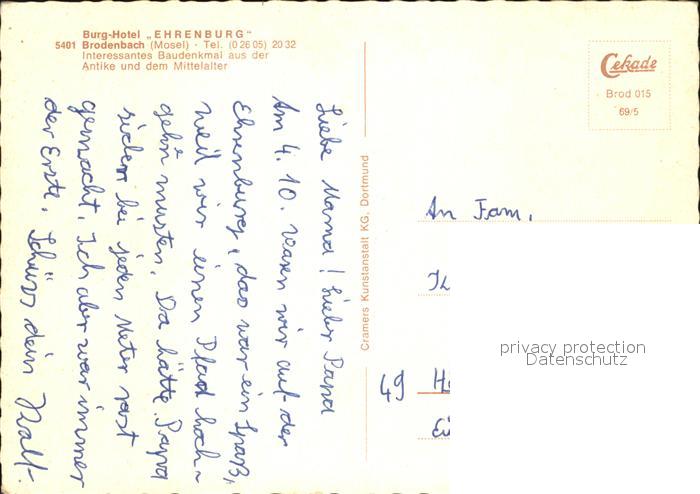 Burg-Hotel „EHRENBURG"
5401 Brodenbach (Mosel) · Tel. (0 26 05) 20 32
Interessantes Baudenkmal aus der
Antike und dem Mittelalter
Liebe Mama! Lieber Papa
Am 4. 10. waren wir auf der
Ehrenburg, das war ein Spaß,
weil wir einen Pfad hoch-
gehn musten. Da hätte Papa
sicher bei jeden Meter rast
gemacht. Ich aber war immer
der Erste. Tschüss dein Ralf.
Cramers Kunstanstalt KG, Dortmund
Cekade
Brod 015
69/5
An Fam.
49
privacy protection
Datenschutz